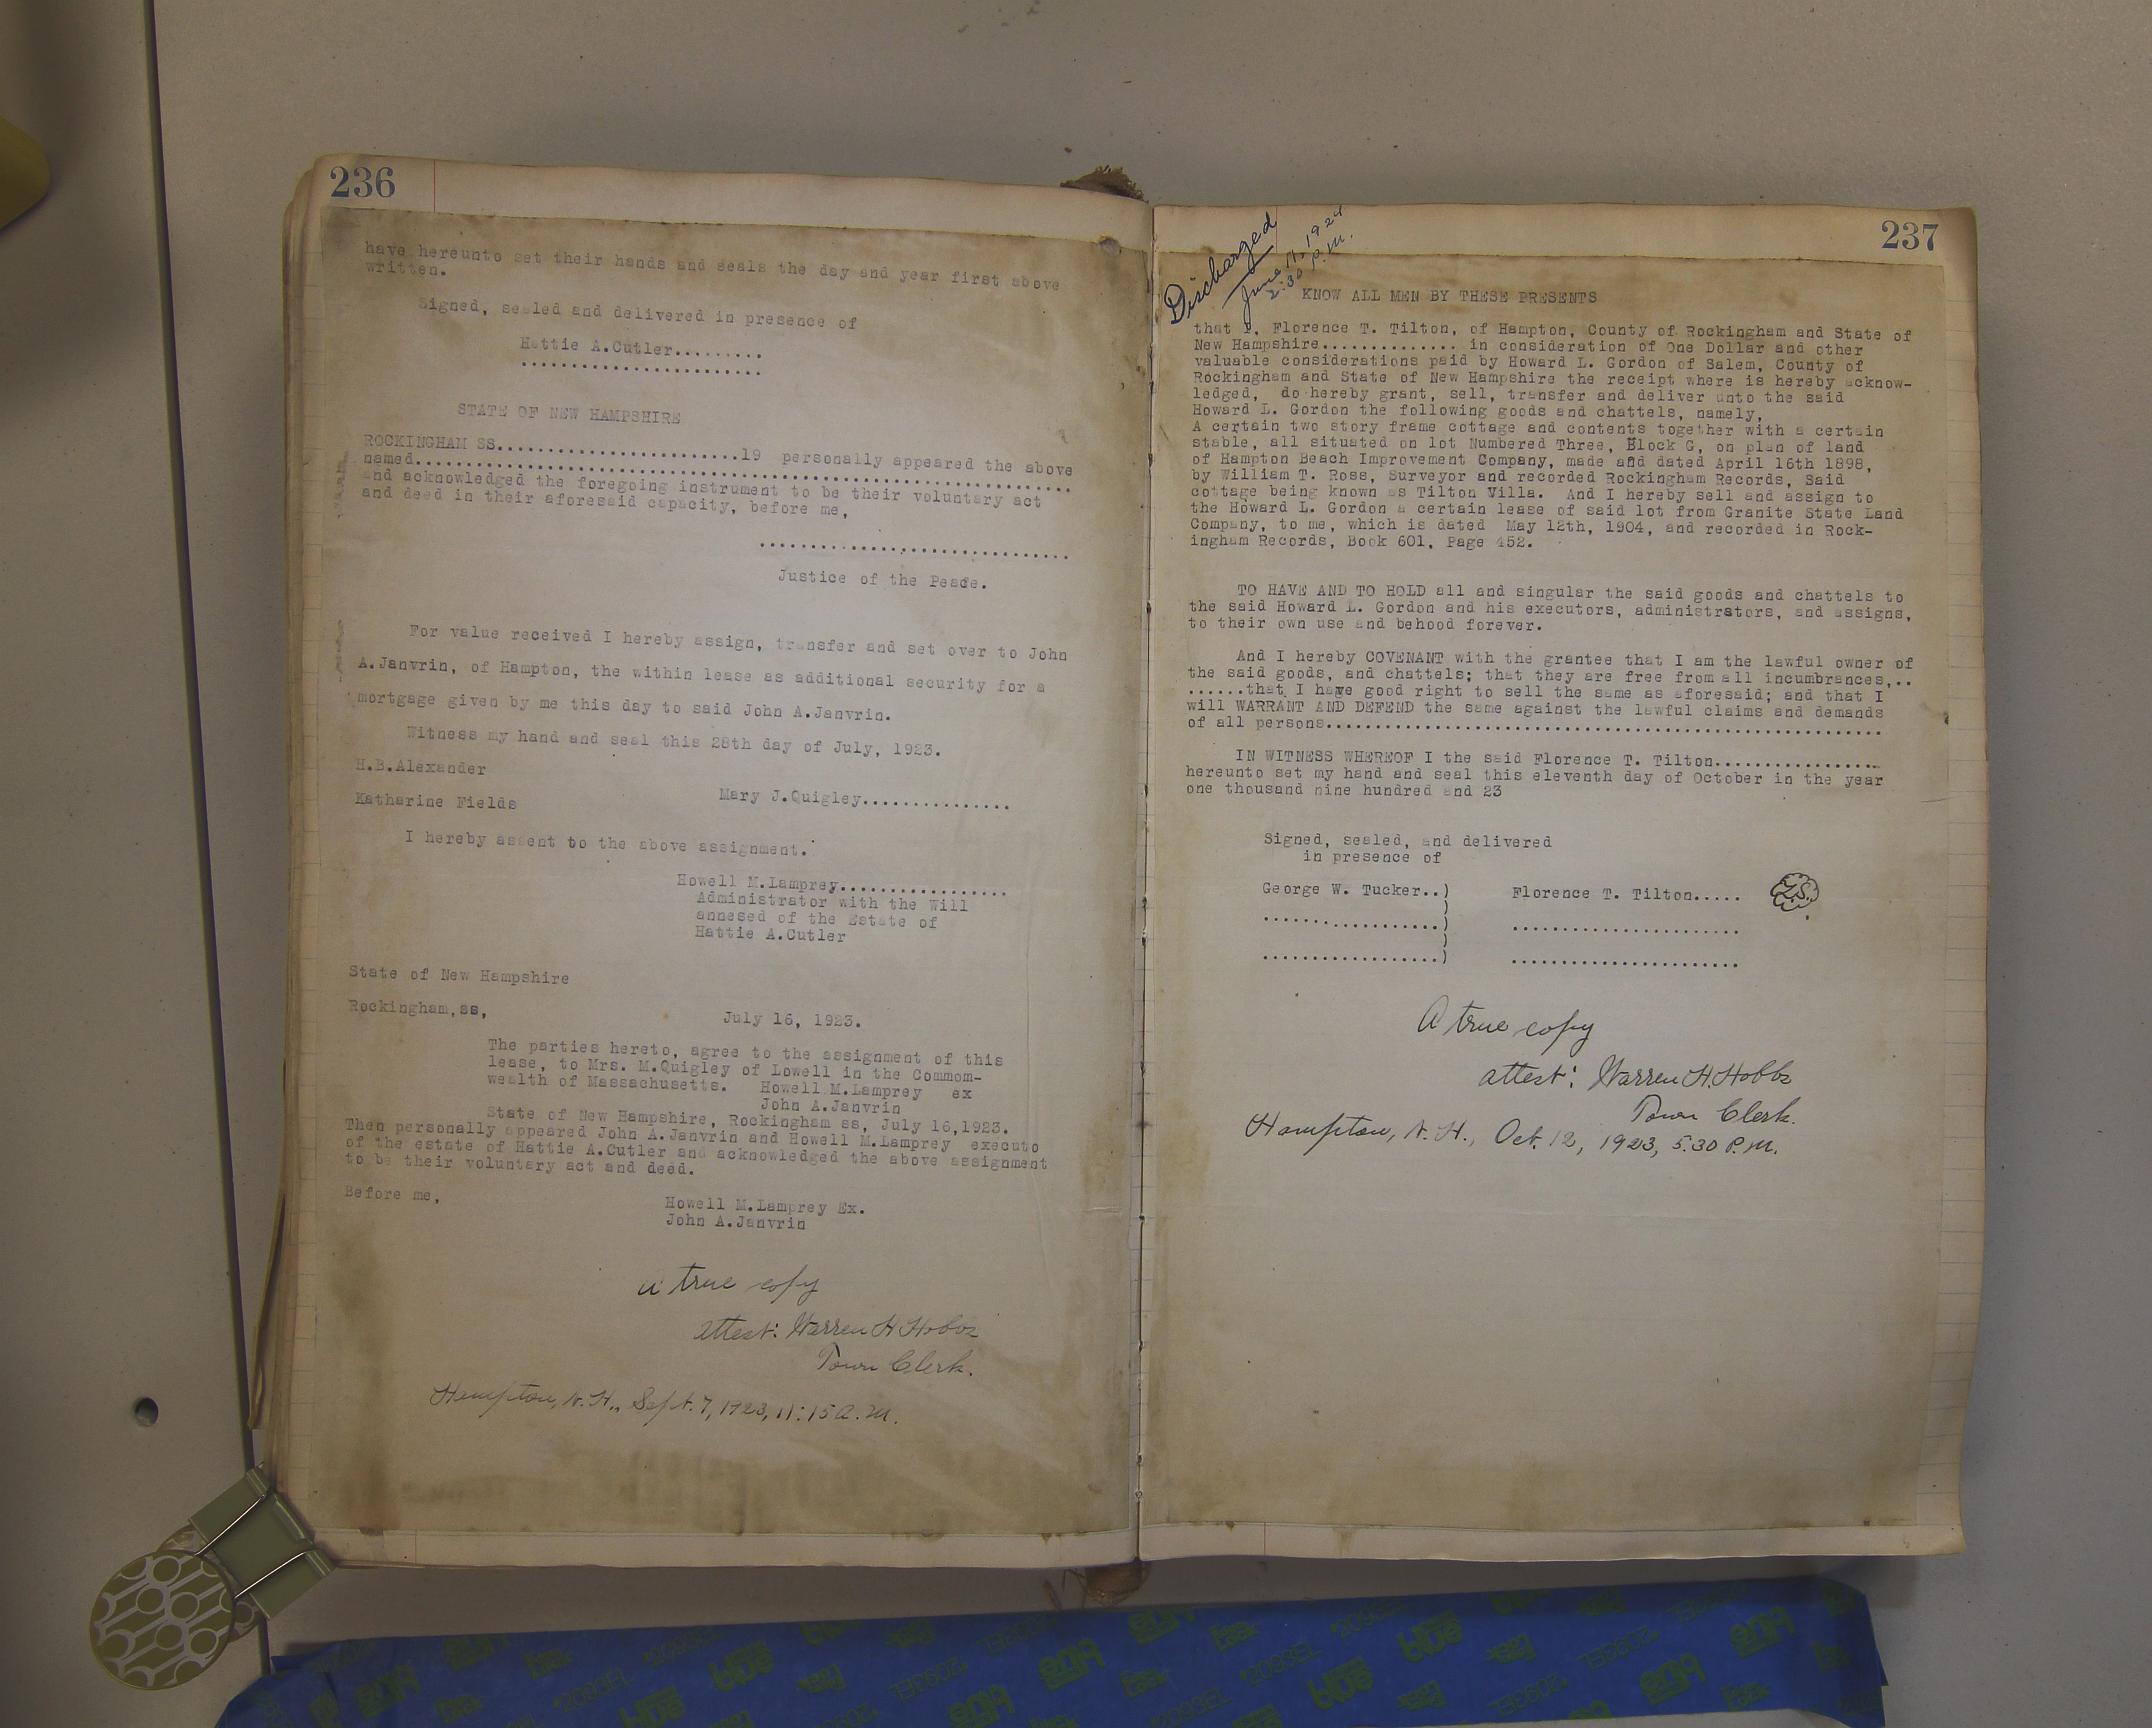 236
have hereunto set their hands and seals the day and year first above
written.
Signed, sealed and delivered in presence of
Hattie A.Cutler.........
........................
STATE OF NEW HAMPSHIRE
ROCKINGHAM SS........................19  personally appeared the above
named..................................................................
and acknowledged the foregoing instrument to be their voluntary act
and deed in their aforesaid capacity, before me,
...............................
Justice of the Peace.
For value received I hereby assign, transfer and set over to John
A.Janvrin, of Hampton, the within lease as additional security for a
mortgage given by me this day to said John A.Janvrin.
Witness my hand and seal this 28th day of July, 1923.
H.B.Alexander
Katharine Fields
Mary J.Quigley...............
I hereby assent to the above assignment.
Howell M.Lamprey.................
Administrator with the Will
annesed of the Estate of
Hattie A.Cutler
State of New Hampshire
Rockingham,ss,
July 16, 1923.
The parties hereto, agree to the assignment of this
lease, to Mrs. M.Quigley of Lowell in the Commom-
wealth of Massachusetts.   Howell M.Lamprey   ex
John A.Janvrin
State of New Hampshire, Rockingham ss, July 16,1923.
Then personally appeared John A.Janvrin and Howell M.Lamprey  executo
of the estate of Hattie A.Cutler and acknowledged the above assignment
to be their voluntary act and deed.
Before me,
Howell M.Lamprey Ex.
John A.Janvrin
a true copy
attest: Warren H Hobbs
Town Clerk.
Hampton, N.H., Sept. 7, 1923, 11:15 A.M.
237
Discharged
June 11, 1924
2:30 P.M.
KNOW ALL MEN BY THESE PRESENTS
that I, Florence T. Tilton, of Hampton, County of Rockingham and State of
New Hampshire.............. in consideration of One Dollar and other
valuable considerations paid by Howard L. Gordon of Salem, County of
Rockingham and State of New Hampshire the receipt where is hereby acknow-
ledged,  do hereby grant, sell, transfer and deliver unto the said
Howard L. Gordon the following goods and chattels, namely,
A certain two story frame cottage and contents together with a certain
stable, all situated on lot Numbered Three, Block G, on plan of land
of Hampton Beach Improvement Company, made and dated April 16th 1898,
by William T. Ross, Surveyor and recorded Rockingham Records, Said
cottage being known as Tilton Villa.  And I hereby sell and assign to
the Howard L. Gordon a certain lease of said lot from Granite State Land
Company, to me, which is dated  May 12th, 1904, and recorded in Rock-
ingham Records, Book 601, Page 452.
TO HAVE AND TO HOLD all and singular the said goods and chattels to
the said Howard L. Gordon and his executors, administrators, and assigns,
to their own use and behood forever.
And I hereby COVENANT with the grantee that I am the lawful owner of
the said goods, and chattels; that they are free from all incumbrances,..
......that I have good right to sell the same as aforesaid; and that I
will WARRANT AND DEFEND the same against the lawful claims and demands
of all persons........................................................
IN WITNESS WHEREOF I the said Florence T. Tilton.................
hereunto set my hand and seal this eleventh day of October in the year
one thousand nine hundred and 23
Signed, sealed, and delivered
in presence of
George W. Tucker..)
Florence T. Tilton.....
L.S.
..................)
.......................
..................)
.......................
A true copy
attest: Warren H. Hobbs
Town Clerk.
Hampton, N.H., Oct. 12, 1923, 5.30 P.M.